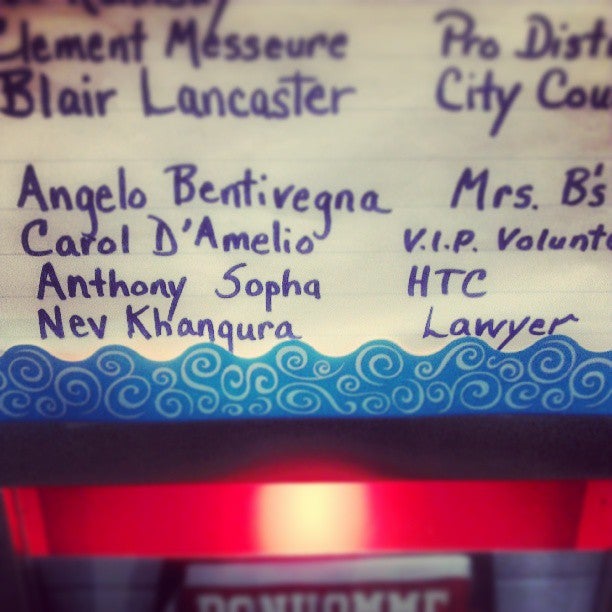 Clement Messeure Pro
Blair Lancaster City
Angelo Bentivegna Mrs. B's
Carol D'Amelio V.I.P. Volunt
Anthony Sopha HTC
Nev Khangura Lawyer
BONHOMME